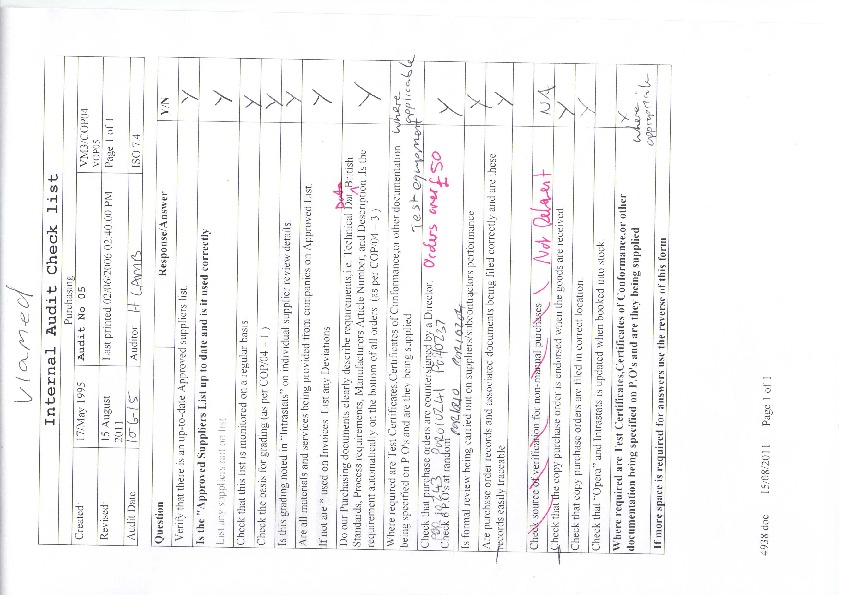 Viamed
Internal Audit Check list
Purchasing
Created 17/May 1995 Audit No 05 VM3/COP/04
VOP05
Revised 15 August
2011 Last printed 02/06/2006 02:40:00 PM Page 1 of 1
Audit Date 10-6-15 Auditor H LAMB ISO 7.4
Question Response/Answer Y/N
Verify that there is an up-to-date Approved suppliers list Y
Is the "Approved Suppliers List up to date and is it used correctly Y
List any suppliers not on list
Check that this list is monitored on a regular basis Y
Check the basis for grading (as per COP/04 - 1 ) Y
Is this grading noted in "Intrastats" on individual supplier review details Y
Are all materials and services being provided from companies on Approved List. Y
If not are * used on Invoices List any Deviations
Do our Purchasing documents clearly describe requirements,i.e. Technical Data British
Standards, Process requirements, Manufacturers Article Number, and Description .Is the
requirement automatically on the bottom of all orders (as per COP/04 - 3 ) Y
Where required are Test Certificates,Certificates of Conformance,or other documentation
being specified on P O's and are they being supplied Test equipment where applicable
Check that purchase orders are countersigned by a Director, Orders over £50
Check P.P.O's at random Y
Is formal review being carried out on suppliers/subcontractors performance Y
Are purchase order records and associated documents being filed correctly and are these
records easily traceable Y
Check source of verification for non-manual purchases Not Relevent NA
Check that the copy purchase order is endorsed when the goods are received Y
Check that copy purchase orders are filed in correct location Y
Check that "Opera" and Intrastats is updated when booked into stock
Where required are Test Certificates,Certificates of Conformance,or other
documentation being specified on P.O's and are they being supplied Y where appropriate
If more space is required for answers use the reverse of this form
4938.doc 15/08/2011 Page 1 of 1